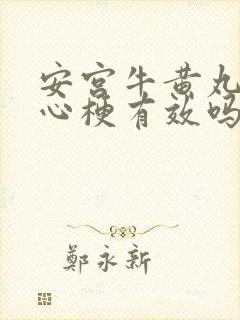 安宫牛黄丸
心梗有效吗
鄭永新